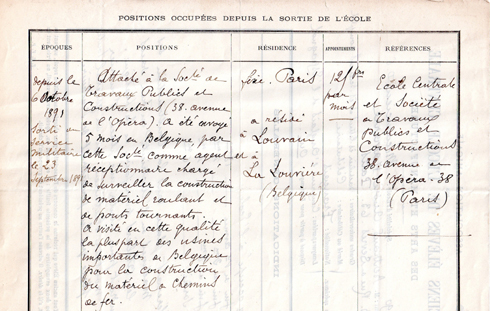 POSITIONS OCCUPÉES DEPUIS LA SORTIE DE L'ÉCOLE
ÉPOQUES
depuis le
6 Octobre
1891
Sorti du
Service
Militaire
le 23
Septembre 1891
POSITIONS
Attaché à la Socté de
Travaux Publics et
Constructions (38. avenue
de l'Opéra). a été envoyé
5 mois en Belgique, par
cette Socté comme agent
réceptionnaire chargé
de surveiller la construction
de matériel roulant et
de ponts tournants.
a visité en cette qualité
la pluspart des usines
importantes de Belgique
pour la construction
du matériel de Chemins
de fer.
RÉSIDENCE
fixe. Paris
a résidé
à Louvain
et à
La Louvière
(Belgique)
APPOINTEMENTS
par
mois
RÉFÉRENCES
Ecole Centrale
et Société
de Travaux
Publics et
Constructions
38. avenue de
l'Opéra. 38
(Paris)